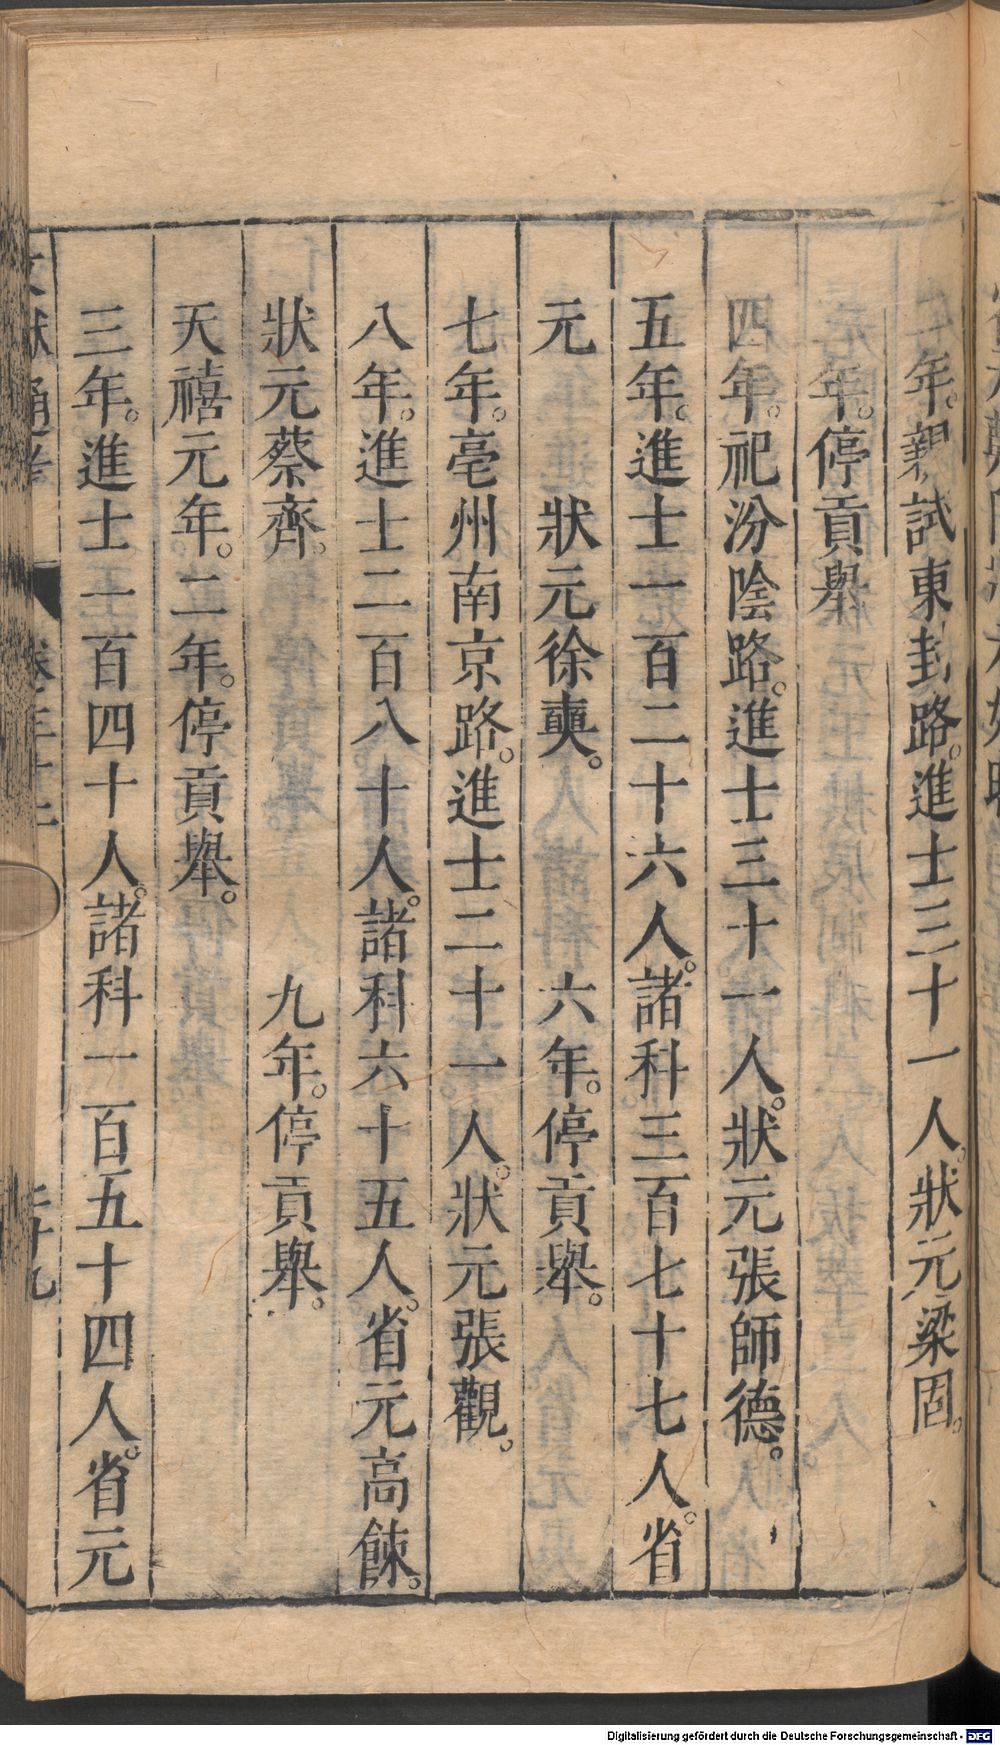 二年。親試東封路。進士三十一人。狀元梁固。
三年。停貢舉
四年。祀汾陰路。進士三十一人。狀元張師德。
五年。進士一百二十六人。諸科三百七十七人。省
元　　狀元徐奭。　　六年。停貢舉。
七年。亳州南京路。進士二十一人。狀元張觀。
八年。進士二百八十人。諸科六十五人。省元高餗。
狀元蔡齊。　　九年。停貢舉。
天禧元年。二年。停貢舉。
三年。進士一百四十人。諸科一百五十四人。省元
文獻通考　卷三十二　三十九
Digitalisierung gefördert durch die Deutsche Forschungsgemeinschaft - DFG